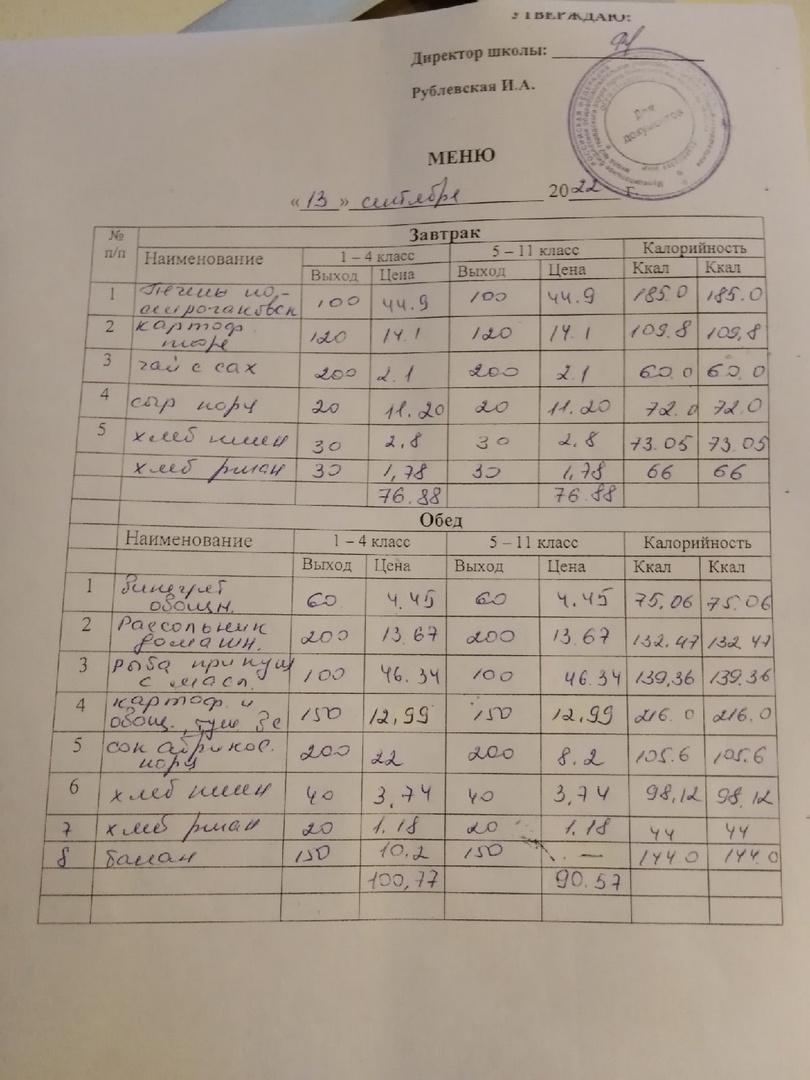 УТВЕРЖДАЮ:
Директор школы:
Рублевская И.А.
Для
документов
МЕНЮ
«13» сентября 2022 г.
№ п/п Завтрак
Наименование 1 – 4 класс 5 – 11 класс Калорийность
Выход Цена Выход Цена Ккал Ккал
1 Печень по-
строгановск 100 44.9 100 44.9 185.0 185.0
2 картоф.
пюре 120 14.1 120 14.1 109.8 109,8
3 чай с сах 200 2.1 200 2.1 60.0 60.0
4 сыр порц 20 11.20 20 11.20 72.0 72.0
5 хлеб пшен 30 2,8 30 2,8 73.05 73.05
хлеб ржан 30 1,78 30 1,78 66 66
76.88 76.88
Обед
Наименование 1 – 4 класс 5 – 11 класс Калорийность
Выход Цена Выход Цена Ккал Ккал
1 Винегрет
овощн. 60 4.45 60 4.45 75,06 75.06
2 Рассольник
домашн. 200 13.67 200 13.67 132.47 132.47
3 рыба припущ
с масл. 100 46.34 100 46.34 139,36 139.36
4 картоф. и
овощ. туш 150 12,99 150 12,99 216.0 216.0
5 сок абрикос.
порц 200 22 200 8.2 105.6 105.6
6 хлеб пшен 40 3,74 40 3,74 98,12 98,12
7 хлеб ржан 20 1.18 20 1.18 44 44
8 банан 150 10,2 150 . — 144.0 144.0
100,77 90.57